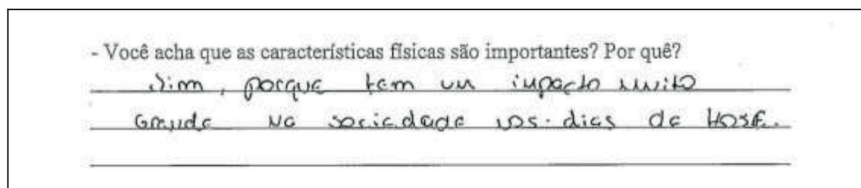 - Você acha que as características físicas são importantes? Por quê?
Sim, porque tem um impacto muito
Grande na sociedade nos dias de HOJE.